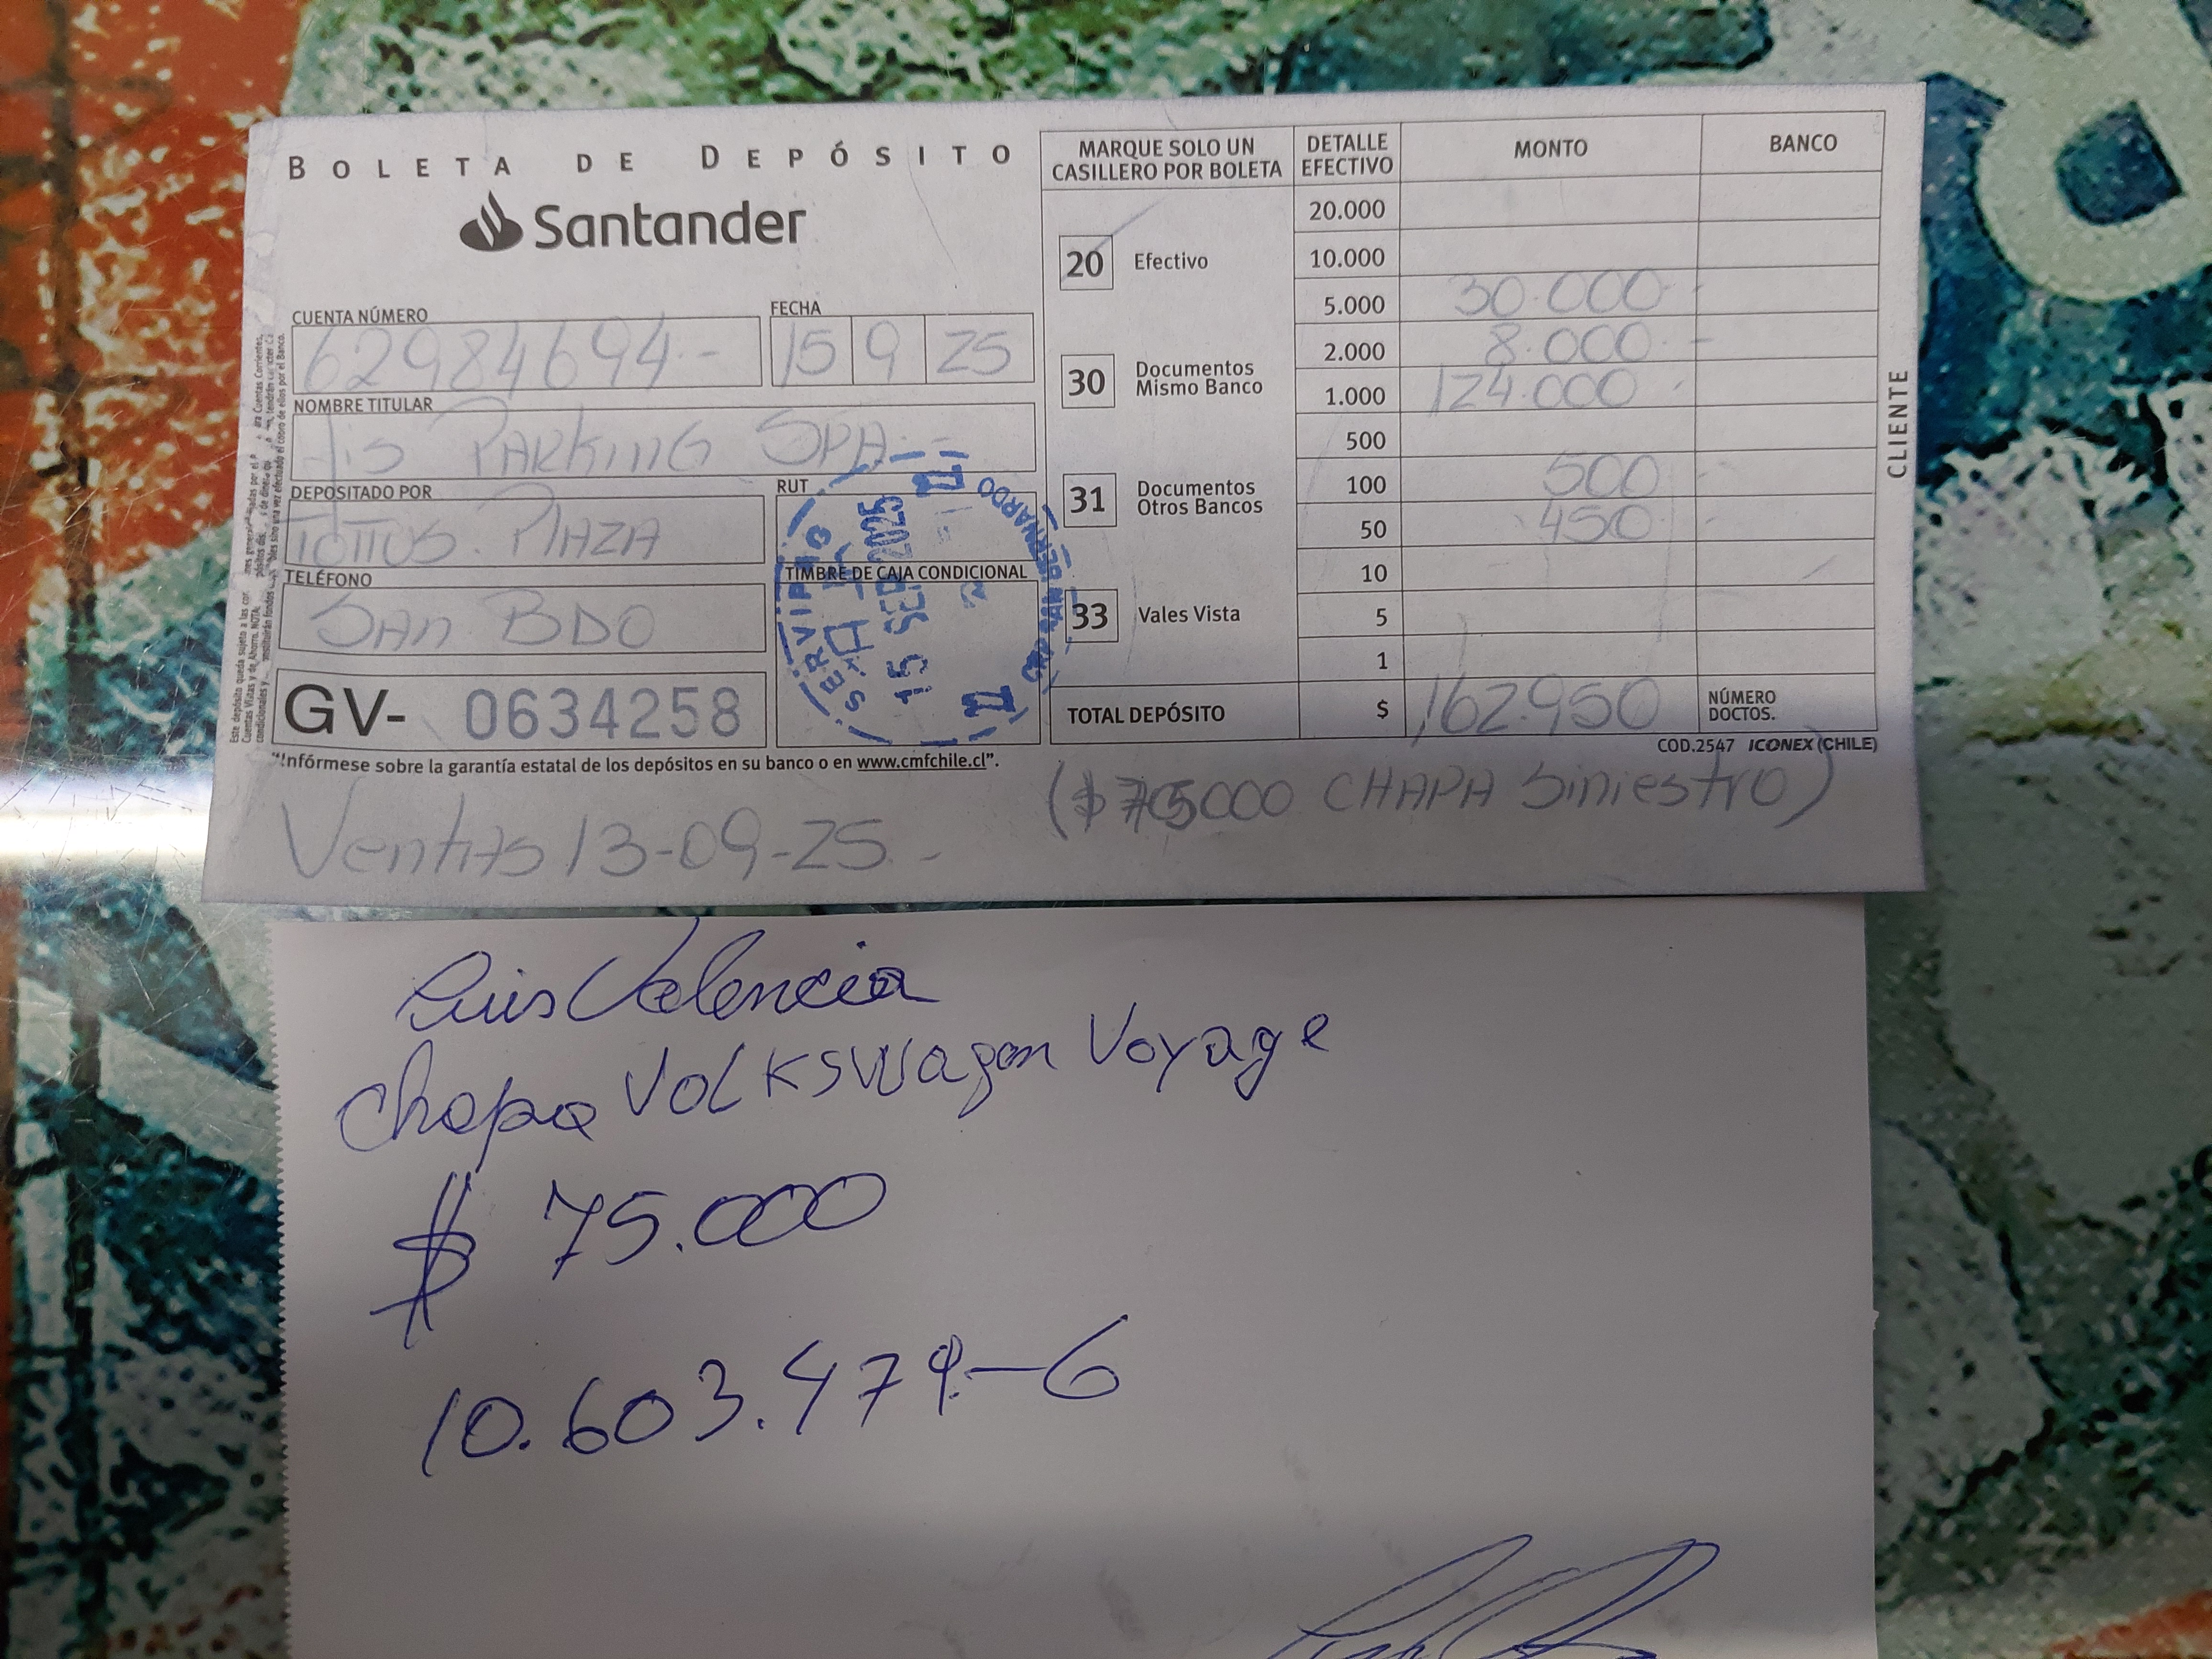 BOLETA DE DEPÓSITO
Santander
CUENTA NÚMERO
62984694.-
FECHA
15 9 25
NOMBRE TITULAR
Jis PARKING SPA.-
DEPOSITADO POR
TOTTUS. PLAZA
RUT
TELÉFONO
SAN BDO
TIMBRE DE CAJA CONDICIONAL
SERVIPAG
15 SEP 2025
SAN BERNARDO
GV- 0634258
"Infórmese sobre la garantía estatal de los depósitos en su banco o en www.cmfchile.cl".
MARQUE SOLO UN CASILLERO POR BOLETA
20 Efectivo
30 Documentos Mismo Banco
31 Documentos Otros Bancos
33 Vales Vista
DETALLE EFECTIVO MONTO BANCO
20.000
10.000
5.000 30.000.-
2.000 8.000.-
1.000 124.000.-
500
100 500.-
50 450.-
10
5
1
TOTAL DEPÓSITO $ 162.950 NÚMERO DOCTOS.
CLIENTE
COD.2547 ICONEX (CHILE)
Ventas 13-09-25.-
($75000 CHAPA Siniestro)
Luis Valencia
Chapa Volkswagen Voyage
$ 75.000
10.603.479-6